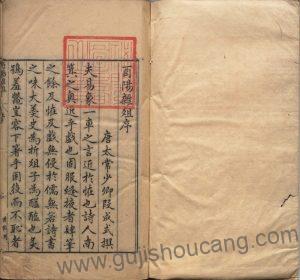 酉陽雜俎序
唐太常少卿段成式撰
夫易象一車之言近於恠也詩人南
箕之興近乎戲也固服縫掖者肆筆
之餘及恠及戲無侵於儒無若詩書
之味大羹史為折俎子為醯醢也炙
鴞羞鱉豈容下箸乎固役而不恥者
www.gujishoucang.com